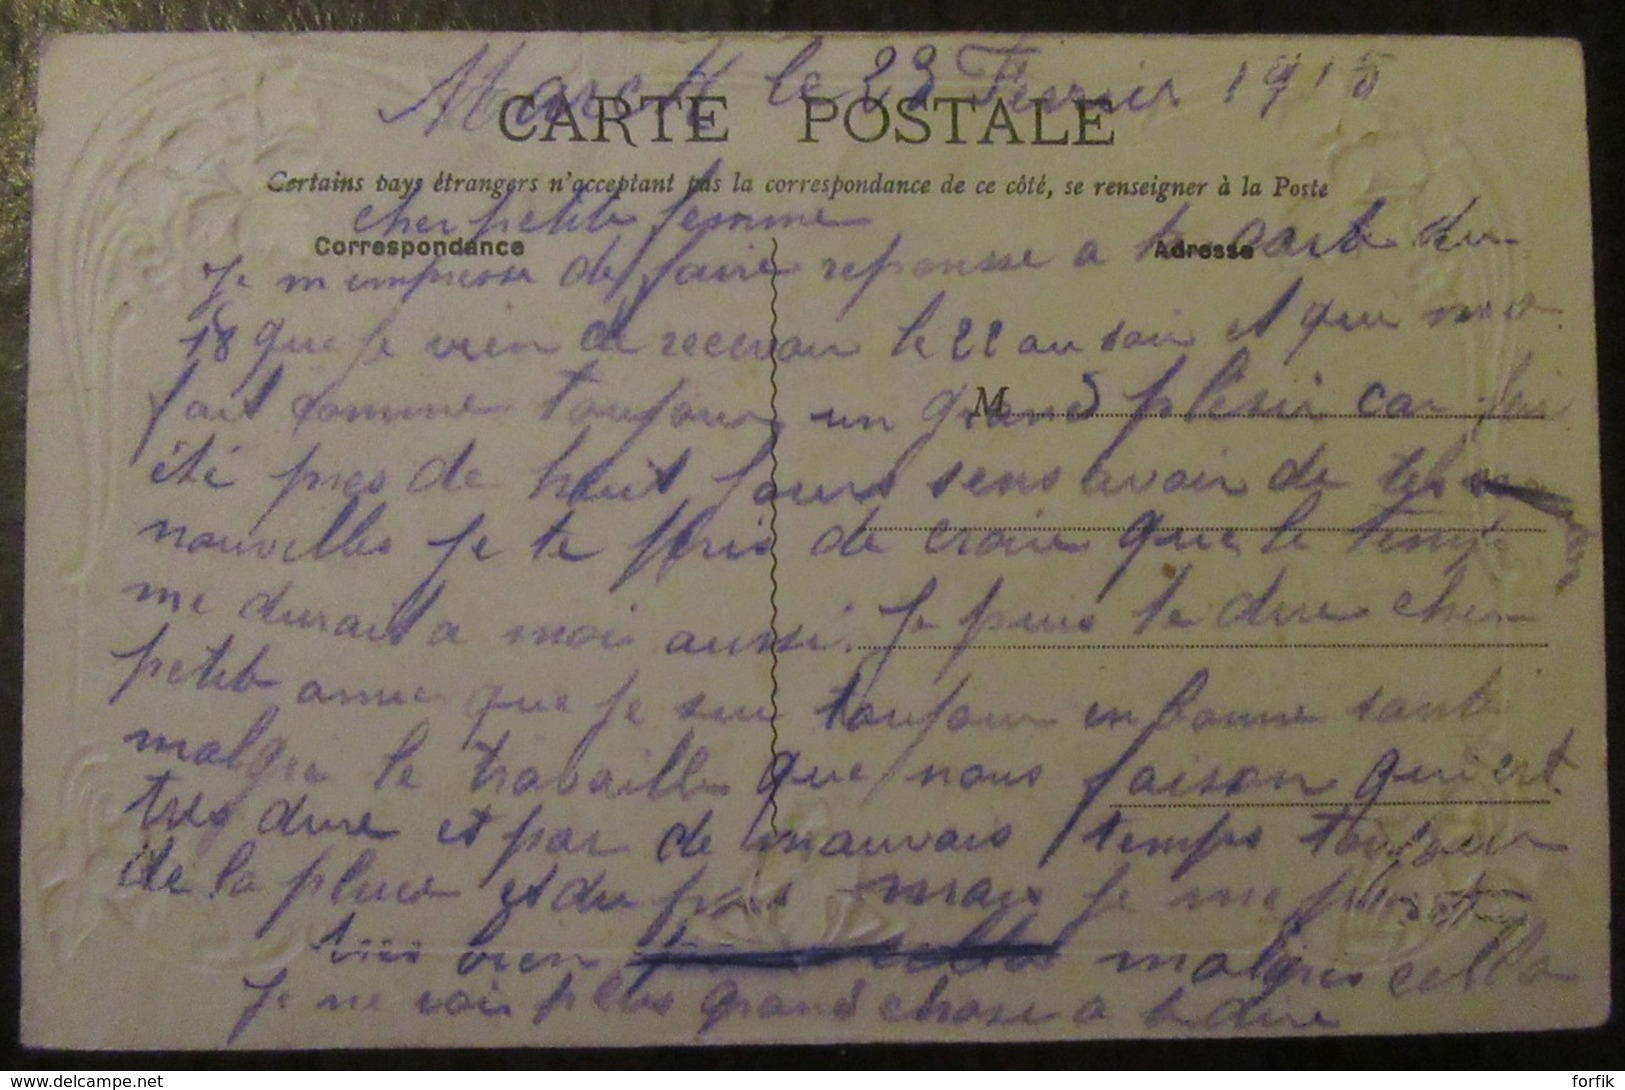 le 23 Fevrier 1915
CARTE POSTALE
Certains pays étrangers n'acceptent pas la correspondance de ce côté, se renseigner à la Poste
cher petite femme
Correspondance
Adresse
Je m'empresse de faire reponsse a ta carte du
18 que je vien de recevoir le 22 au soir et qui ma
M
fait comme toujour un grand plésir car jai
été pres de huit jours sens avoir de tes
nouvelles je te pris de croire que le temps
me durait a moi aussi. Je puis te dire cher
petite amie que je sui toujour en bonne santé
malgre le travaille que nous faison qui est
tres dure et par de mauvais temps toujour
de la pluie et du mais je me porte
tres bien malgres cella
Je ne vois plus grand chose a te dire
www.delcampe.net
forfik